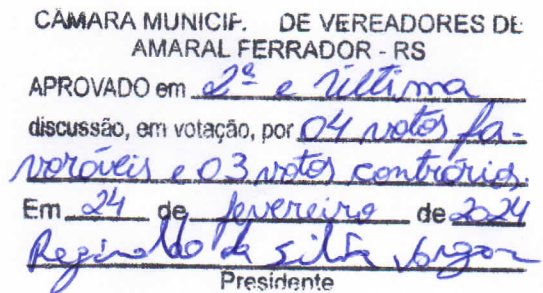 CÂMARA MUNICIP. DE VEREADORES DE
AMARAL FERRADOR - RS
APROVADO em 2ª e última
discussão, em votação, por 04 votos fa-
voráveis e 03 votos contrários.
Em 24 de fevereiro de 2024
Reginaldo da Silva
Presidente